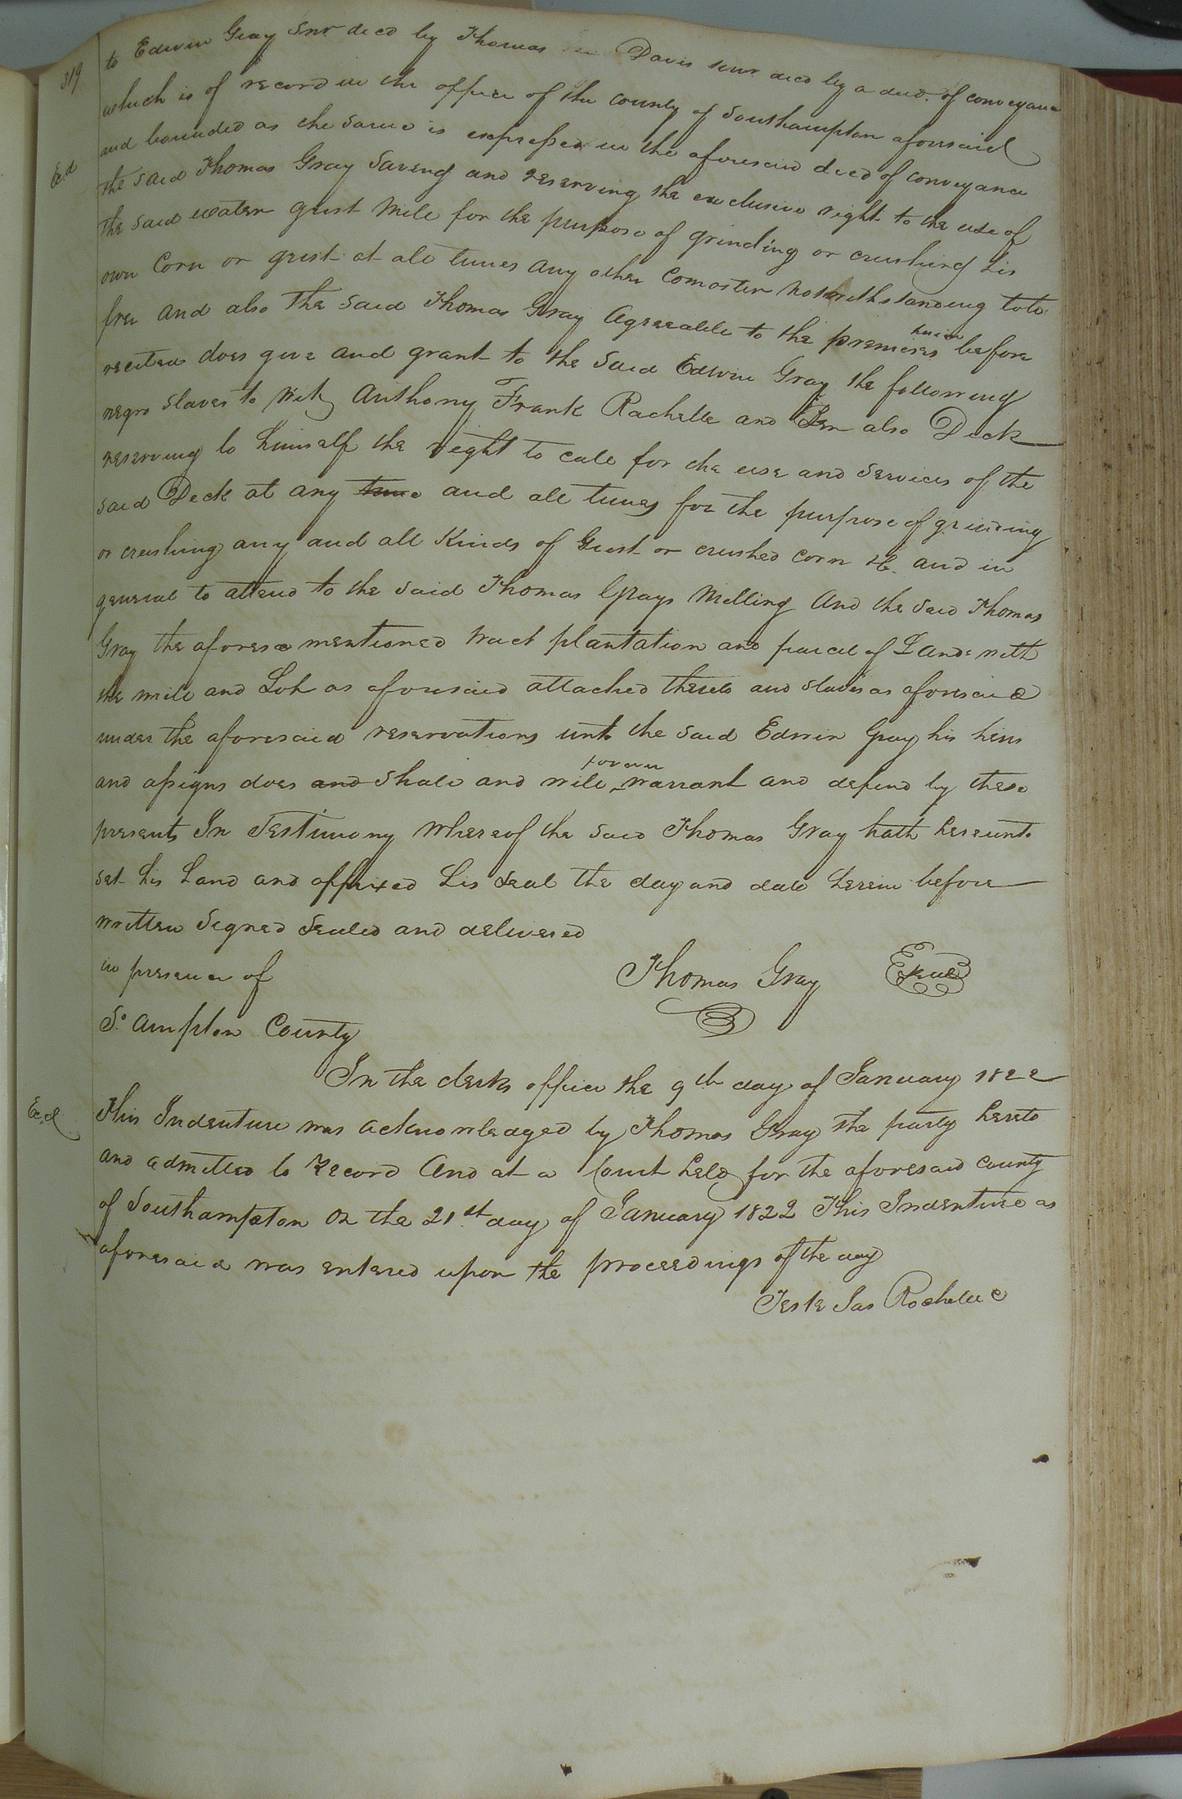 319
to Edwin Gray Snr decd by Thomas Davis senr decd by a deed of conveyance
which is of record in the office of the county of Southampton aforesaid
and bounded as the same is expressed in the aforesaid deed of conveyance
Exd
the said Thomas Gray Saveing and reserving the exclusive right to the use of
the said water grist Mill for the purpose of grinding or crushing his
own Corn or grist at all times any other Comoster notwithstanding tole
free and also the said Thomas Gray Agreeable to the premises herein before
recited does give and grant to the said Edwin Gray the following
negro slaves to wit Anthony Frank Rachelle and Ben also Deck
reserving to himself the right to call for the use and services of the
said Deck at any time and all times for the purpose of grinding
or crushing any and all Kinds of Grist or crushed corn &c. and in
general to attend to the said Thomas Grays Milling And the said Thomas
Gray the aforesd mentioned tract plantation and parcel of Land with
the mill and Loh as aforesaid attached thereto and slaves as aforesaid
under the aforesaid reservations unto the said Edwin Gray his heirs
and assigns does and shall and will forever warrant and defend by these
presents In Testimony Whereof the said Thomas Gray hath hereunto
set his hand and affixed his seal the day and date herein before
written Signed Sealed and delivered
in presence of
Thomas Gray Seal
So. ampton County
In the clerks office the 9th day of January 1822
Exd
This Indenture was acknowledged by Thomas Gray the party hereto
and admitted to Record And at a Court held for the aforesaid county
of Southampton on the 21st day of January 1822 This Indenture as
aforesaid was entered upon the proceedings of the day
Teste Jas Rochelle C